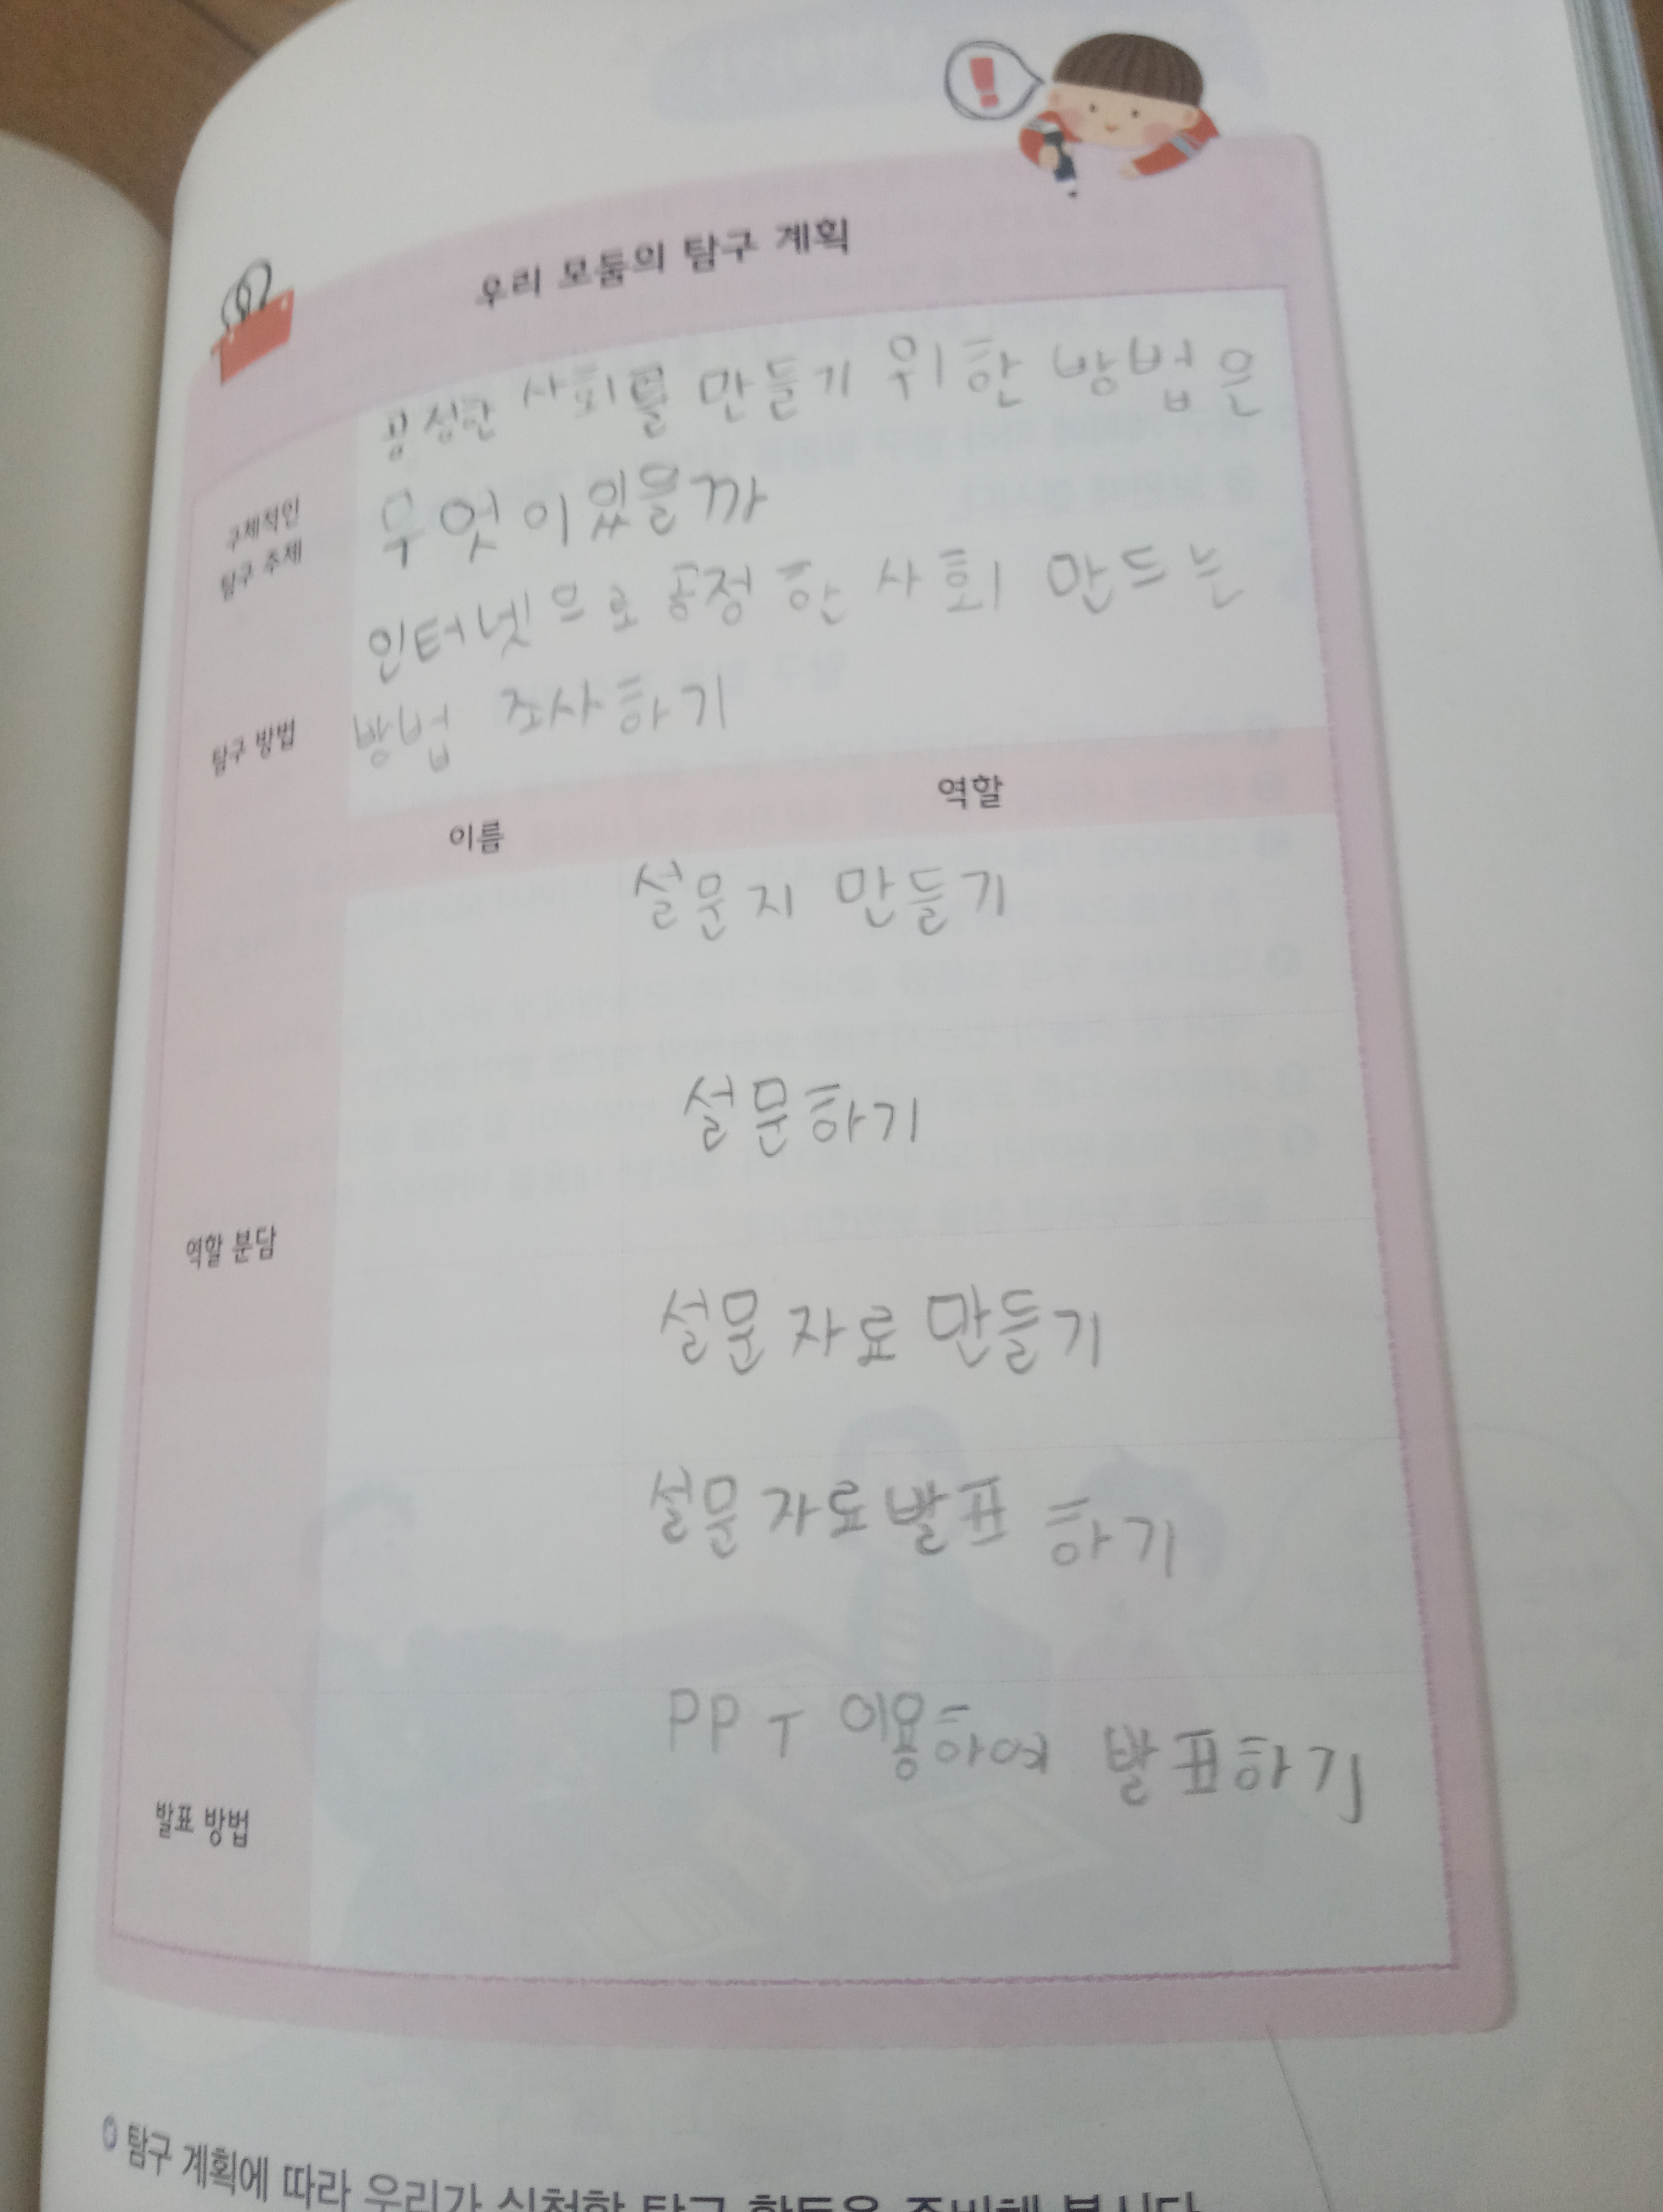 우리 모둠의 탐구 계획
구체적인
탐구 주제
공정한 사회를 만들기 위한 방법은
무엇이있을까
탐구 방법
인터넷으로 공정한 사회 만드는
방법 조사하기
이름 역할
역할 분담
설문지 만들기
설문하기
설문자료 만들기
설문자료발표 하기
발표 방법
PPT 이용하여 발표하기
탐구 계획에 따라 우리가 실천할 탐구 활동을 준비해 봅시다